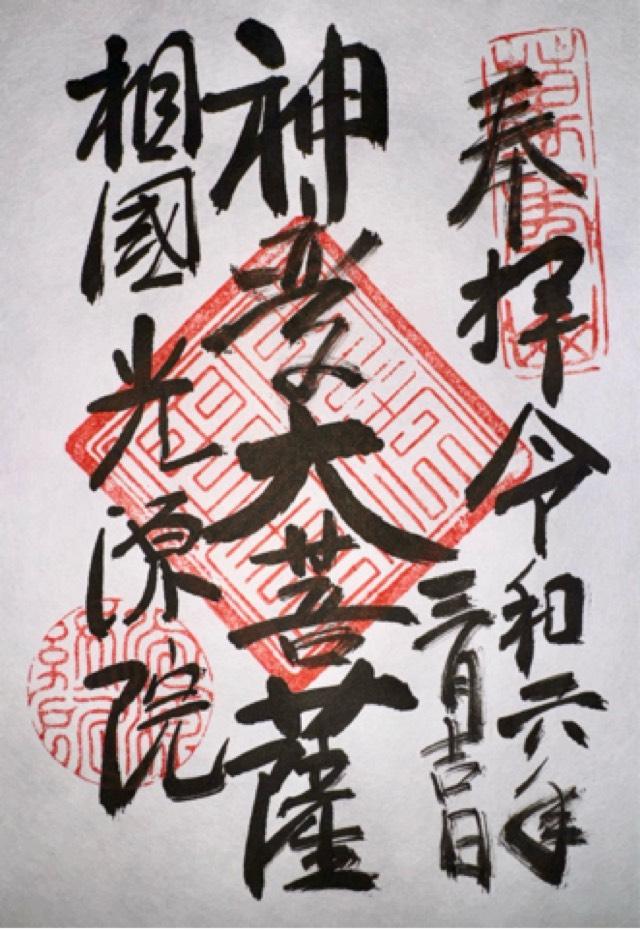 奉拝 令和六年
三月吉日
神変大菩薩
相國光源院